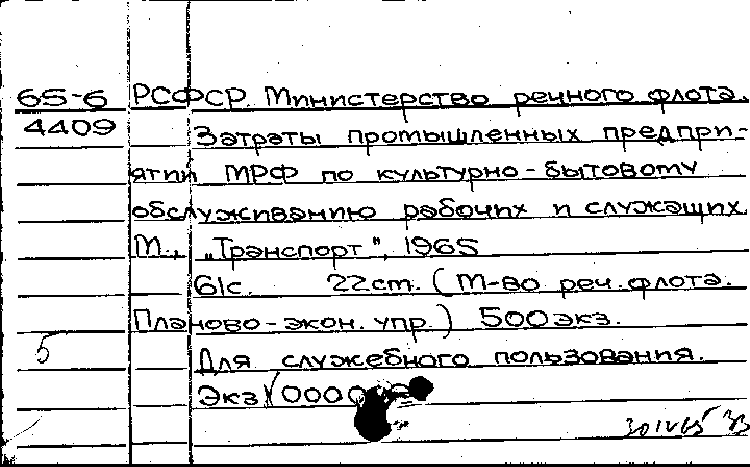 65-6 РСФСР. Министерство речного флота.
4409 Затраты промышленных предпри-
ятий МРФ по культурно-бытовому
обслуживанию рабочих и служащих.
М., „Транспорт", 1965
61с. 22cm. (М-во реч. флота.
Планово-экон. упр.) 500экз.
5 Для служебного пользования.
Экз